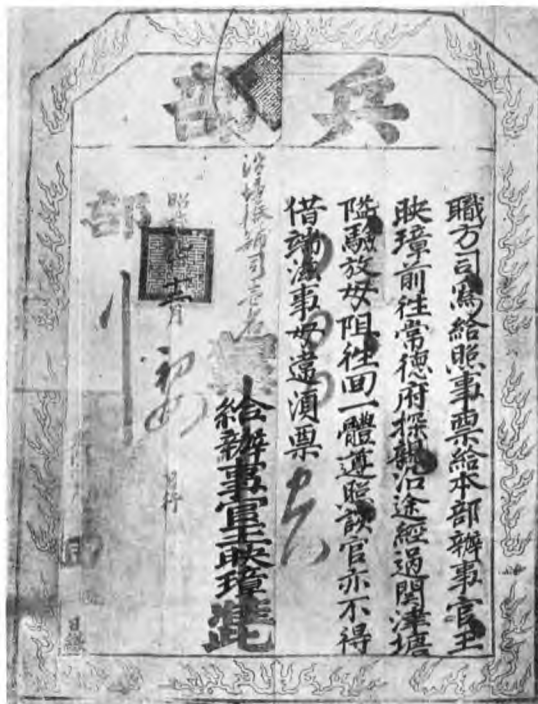 兵部
職方司為給照事票給本部辦事官王
映璋前往常德府探親沿途經過關津塘
隘驗放毋阻往回一體遵照該官亦不得
借端滋事毋違須票
票
給辦事官王映璋
昭武
月
初
日行
部
日繳